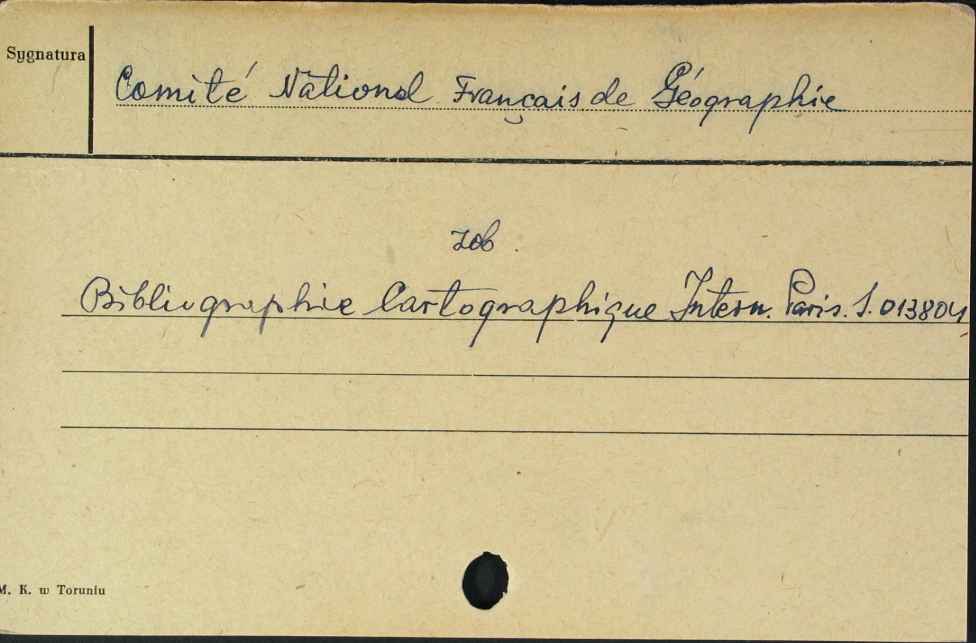 Sygnatura
Comité National Français de Géographie
zob.
Bibliographie Cartographique Intern. Paris. S.013804
M. K. w Toruniu